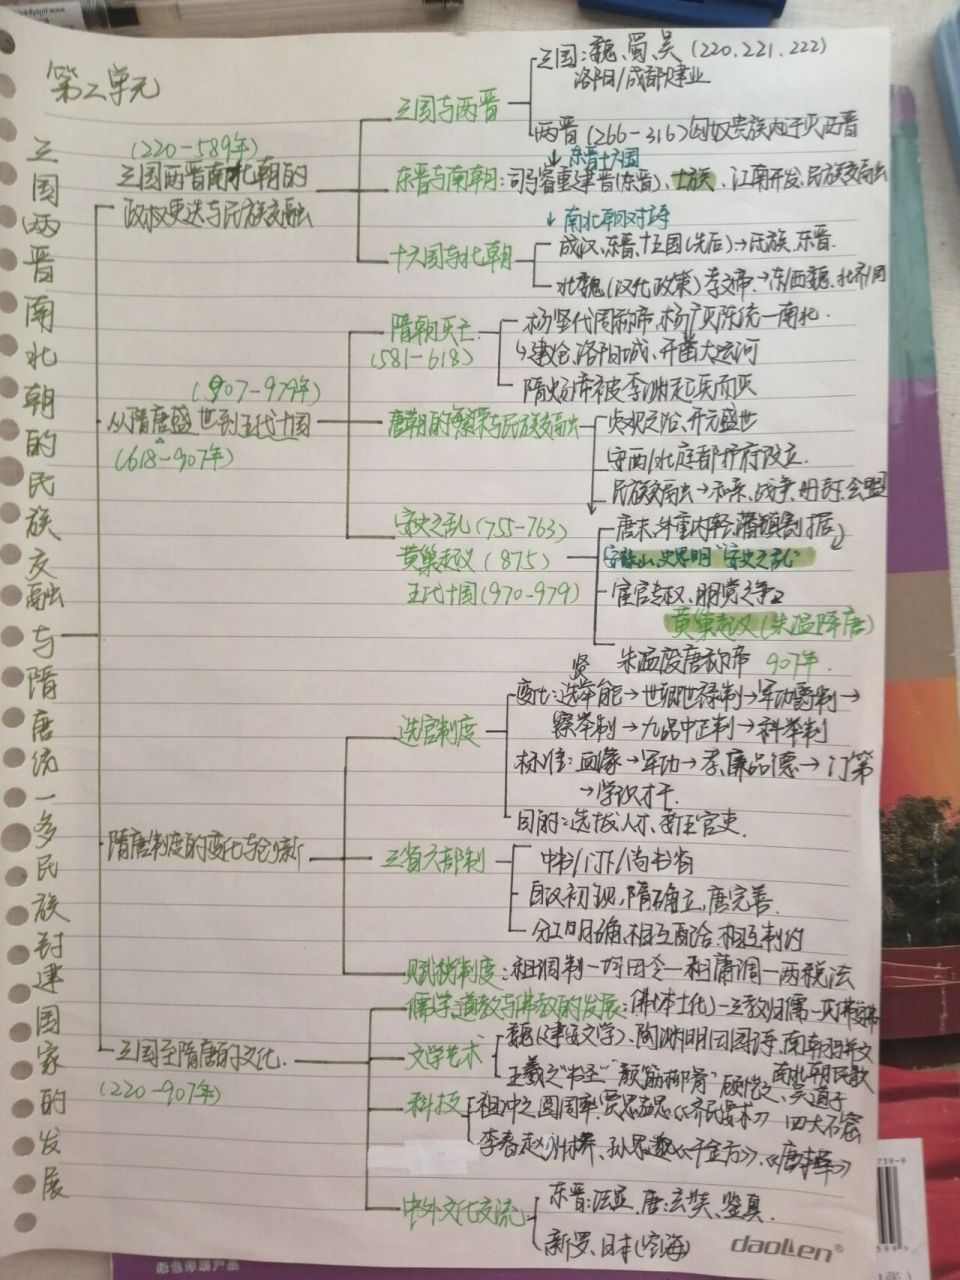 第二单元
三国两晋南北朝的民族交融与隋唐统一多民族封建国家的发展
(220-589年)
三国两晋南北朝的
政权更迭与民族交融
三国与两晋
三国：魏、蜀、吴 (220.221.222)
洛阳/成都/建业
两晋 (266-316) 匈奴贵族内迁灭西晋
↓东晋十六国
东晋与南朝：司马睿重建晋(东晋)、士族、江南开发、民族交融
↓南北朝对峙
十六国与北朝
成汉、东晋、十五国(先后)→氐族、东晋.
北魏(汉化政策)孝文帝→东/西魏、北齐/周
(907-979年)
从隋唐盛世到五代十国
(618-907年)
隋朝灭亡
(581-618)
杨坚代周称帝、杨广灭陈统一南北.
↳建仓、洛阳城、开凿大运河
隋炀帝被李渊起兵而灭
唐朝的繁荣与民族交融
贞观之治、开元盛世
安西/北庭都护府设立.
民族交融→和亲、战争、册封、会盟
安史之乱(755-763)
黄巢起义(875)
五代十国(970-979)
唐末、外重内轻、藩镇割据
安禄山、史思明"安史之乱"
宦官专权、朋党之争
黄巢起义(朱温降唐)
朱温废唐称帝 907年.
隋唐制度的变化与创新
选官制度
变化：选举贤能→世卿世禄制→军功爵制→
察举制→九品中正制→科举制
标准：血缘→军功→孝廉品德→门第
→学识才干.
目的：选拔人才、
三省六部制
中书/门下/尚书省
自汉初现，隋确立，唐完善.
分工明确、相互配合、相互制约
赋税制度：租调制—均田令—租庸调—两税法
三国至隋唐的文化.
(220-907年)
儒学道教与佛教的发展：佛(本土化)—三教归儒—灭佛
文学艺术
魏(建安文学)、陶渊明田园诗、南朝骈文
南北朝民歌
王羲之"书圣" "颜筋柳骨" 顾恺之、吴道子
四大石窟
科技
祖冲之圆周率、贾思勰《齐民要术》
李春赵州桥、孙思邈《千金方》、《唐本草》
中外文化交流
东晋：法显、唐：玄奘、鉴真.
新罗、日本(空海)
daoLen®
739-9
绿色印刷产品